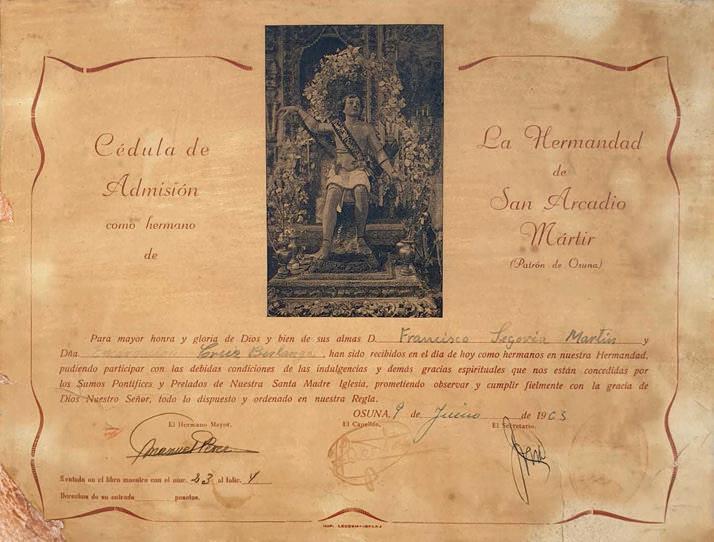 Cédula de
Admisión
como hermano
de
La Hermandad
de
San Arcadio
Mártir
(Patrón de Osuna)
Para mayor honra y gloria de Dios y bien de sus almas D. Francisco Segovia Martín y
Dña Cruz Berlanga, han sido recibidos en el día de hoy como hermanos en nuestra Hermandad,
pudiendo participar con las debidas condiciones de las indulgencias y demás gracias espirituales que nos están concedidas por
los Sumos Pontífices y Prelados de Nuestra Santa Madre Iglesia, prometiendo observar y cumplir fielmente con la gracia de
Dios Nuestro Señor, todo lo dispuesto y ordenado en nuestra Regla.
OSUNA, 9 de Junio de 1963
El Hermano Mayor, El Capellán, El Secretario,
Manuel Pérez
Sentada en el libro maestro con el núm. 23 al folio. 4
Derechos de su entrada pesetas.